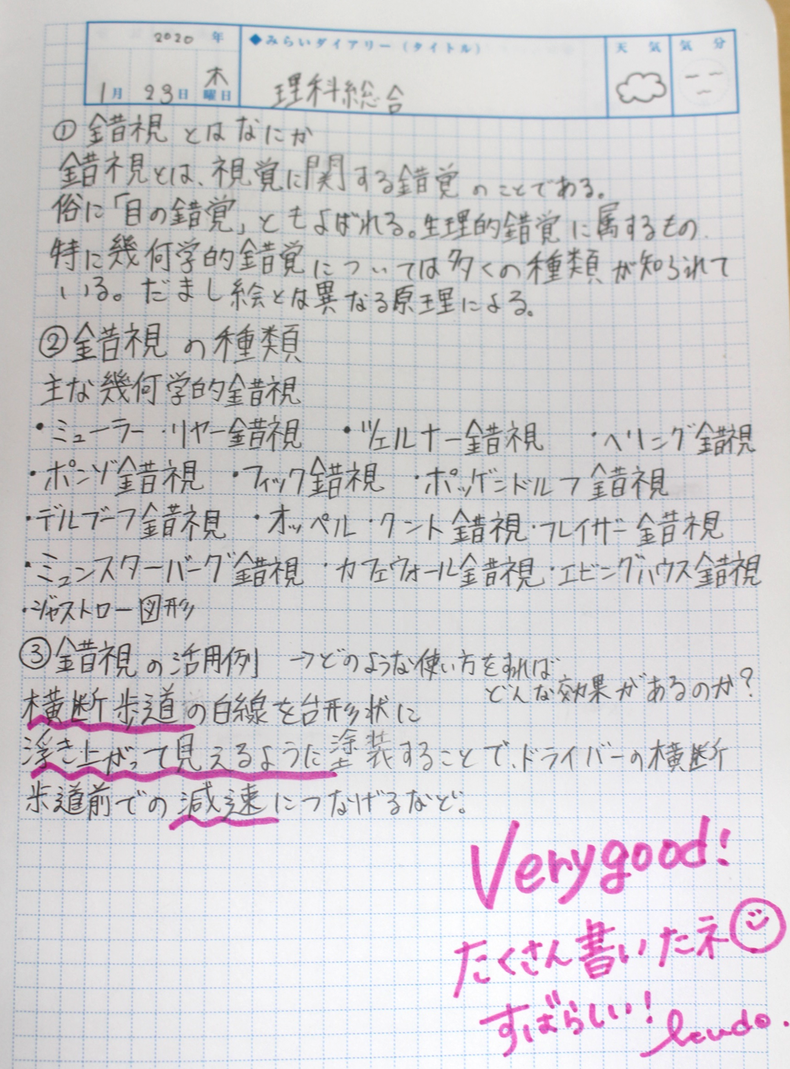 2020 年
◆みらいダイアリー（タイトル）
天気
気分
1月 23日 木曜日
理科総合
① 錯視 とはなにか
錯視とは、視覚に関する錯覚 のことである。
俗に「目の錯覚」ともよばれる。生理的錯覚に属するもの、
特に幾何学的錯覚については多くの種類が知られて
いる。だまし絵とは異なる原理による。
② 錯視 の種類
主な幾何学的錯視
・ミューラー・リヤー錯視 ・ツェルナー錯視 ・ヘリング錯視
・ポンゾ錯視 ・フィック錯視 ・ポッゲンドルフ錯視
・デルブーフ錯視 ・オッペル・クント錯視・フレイザー錯視
・ミュンスターバーグ錯視 ・カフェウォール錯視・エビングハウス錯視
・ジャストロー図形
③ 錯視の活用例 →どのような使い方をすれば
どんな効果があるのか?
横断歩道の白線を台形状に
浮き上がって見えるように塗装することで、ドライバーの横断
歩道前での減速につなげるなど。
Very good!
たくさん書いたネ
すばらしい!